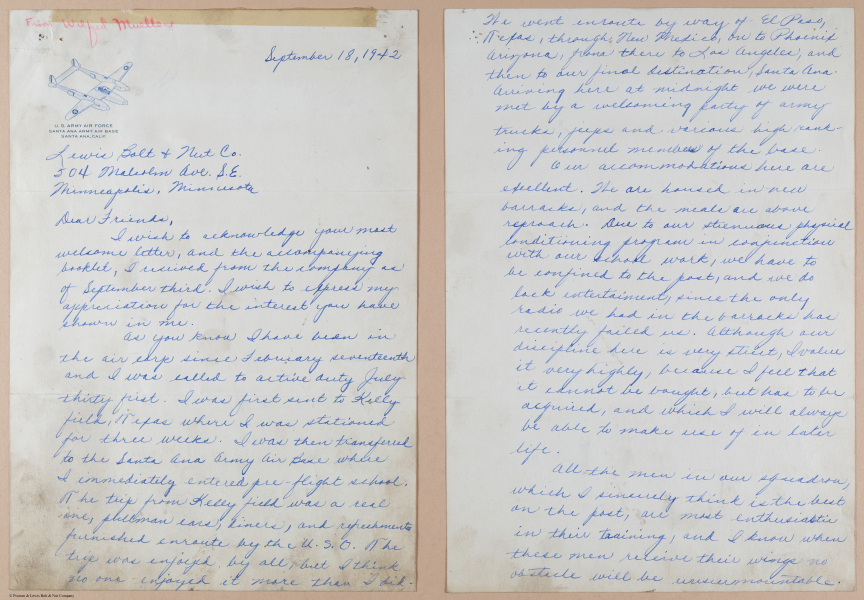 From Wilfred Mueller
September 18, 1942
U.S. ARMY AIR FORCE
SANTA ANA ARMY AIR BASE
SANTA ANA, CALIF.
Lewis Bolt & Nut Co.
504 Malcolm Ave. S.E.
Minneapolis, Minnesota
Dear Friends,
I wish to acknowledge your most
welcome letter, and the accompanying
booklet, I received from the company as
of September third. I wish to express my
appreciation for the interest you have
shown in me.
As you know I have been in
the air corp since February seventeenth
and I was called to active duty July
thirty first. I was first sent to Kelly
field, Texas where I was stationed
for three weeks. I was then transferred
to the Santa Ana Army Air Base where
I immediately entered pre-flight school.
The trip from Kelly field was a real
one, pullman cars, diners, and refreshments
furnished enroute by the U.S.O. The
trip was enjoyed by all, but I think
no one enjoyed it more than I did.
We went enroute by way of El Paso,
Texas, through New Mexico, on to Phoenix
Arizona, from there to Los Angeles, and
then to our final destination, Santa Ana.
Arriving here at midnight we were
met by a welcoming party of army
trucks, jeeps and various high rank-
ing personnel members of the base.
Our accommodations here are
exellent. We are housed in new
barracks, and the meals are above
reproach. Due to our strenuous physical
conditioning program in conjunction
with our school work, we have to
be confined to the post, and we do
lack entertaiment, since the only
radio we had in the barracks has
recently failed us. Although our
discipline here is very strict, I value
it very highly, because I feel that
it cannot be bought, but has to be
acquired, and which I will always
be able to make use of in later
life.
All the men in our squadron,
which I sincerely think is the best
on the post, are most enthusiastic
in their training, and I know when
these men receive their wings no
obstacle will be unsurmountable.
© Pioneer & Lewis Bolt & Nut Company